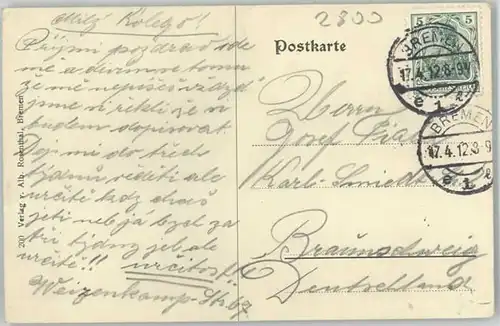 Milý Kolego!
Přijmi pozdrav ode
mě a divím se tomu
že mě nepíšeš vždyť
jsme si řekli že si
budem dopisovat.
Dej mi do třech
týdnů vedeti ale
určitě kdy chceš
jeti neb já bych za
tři týdny jel ale
určitě!! určitost!!
Weizenkamp-Str. 67
2800
Postkarte
5 5
BREMEN
17.4.12.8-9V
e 1 e
BREMEN
17.4.12.8-9
e 1 e
Herrn
Josef
Karl-Schmidt
Braunschweig
Deutschland
200 Verlag v. Alb. Rosenthal, Bremen